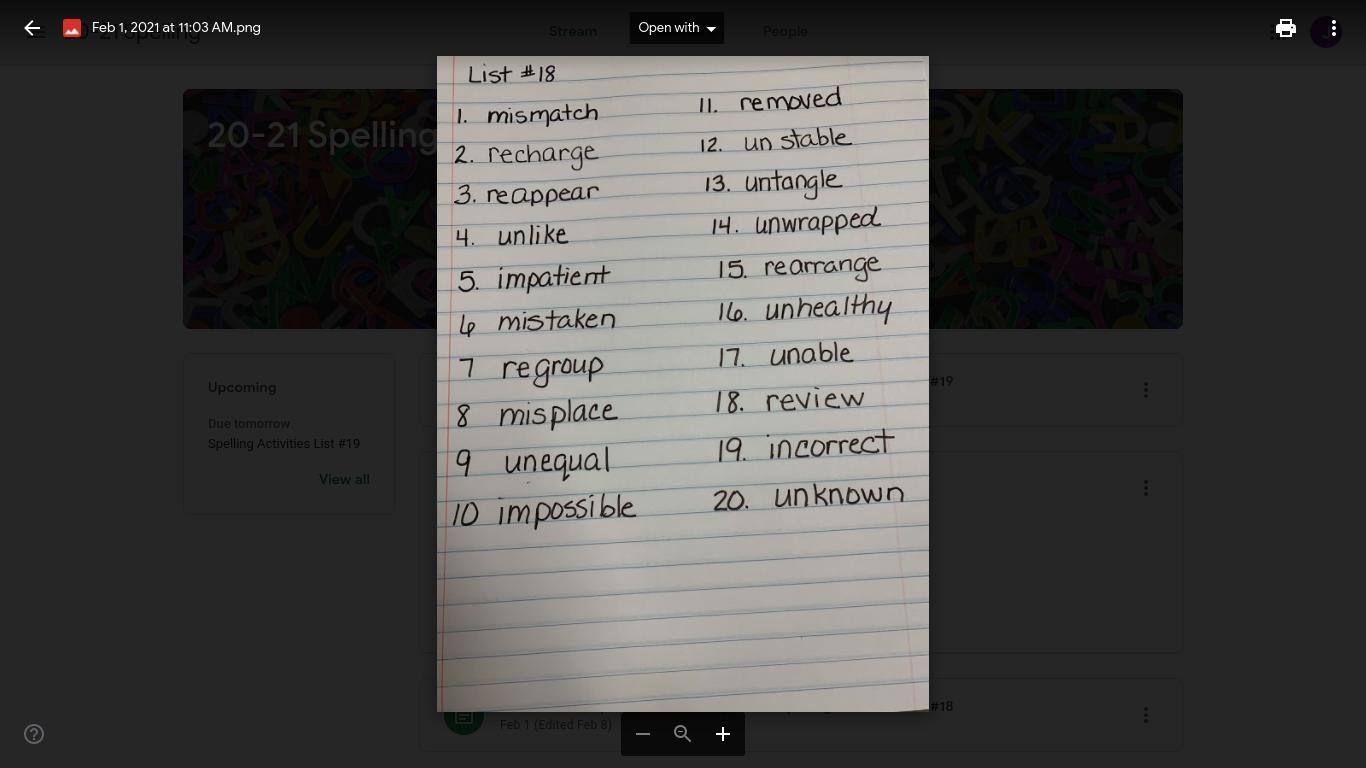 Feb 1, 2021 at 11:03 AM.png
Open with
Stream
People
20-21 Spelling
List #18
1. mismatch
2. recharge
3. reappear
4. unlike
5. impatient
6 mistaken
7 regroup
8 misplace
9 unequal
10 impossible
11. removed
12. unstable
13. untangle
14. unwrapped
15. rearrange
16. unhealthy
17. unable
18. review
19. incorrect
20. unknown
Upcoming
Due tomorrow
Spelling Activities List #19
View all
#19
#18
Feb 1 (Edited Feb 8)